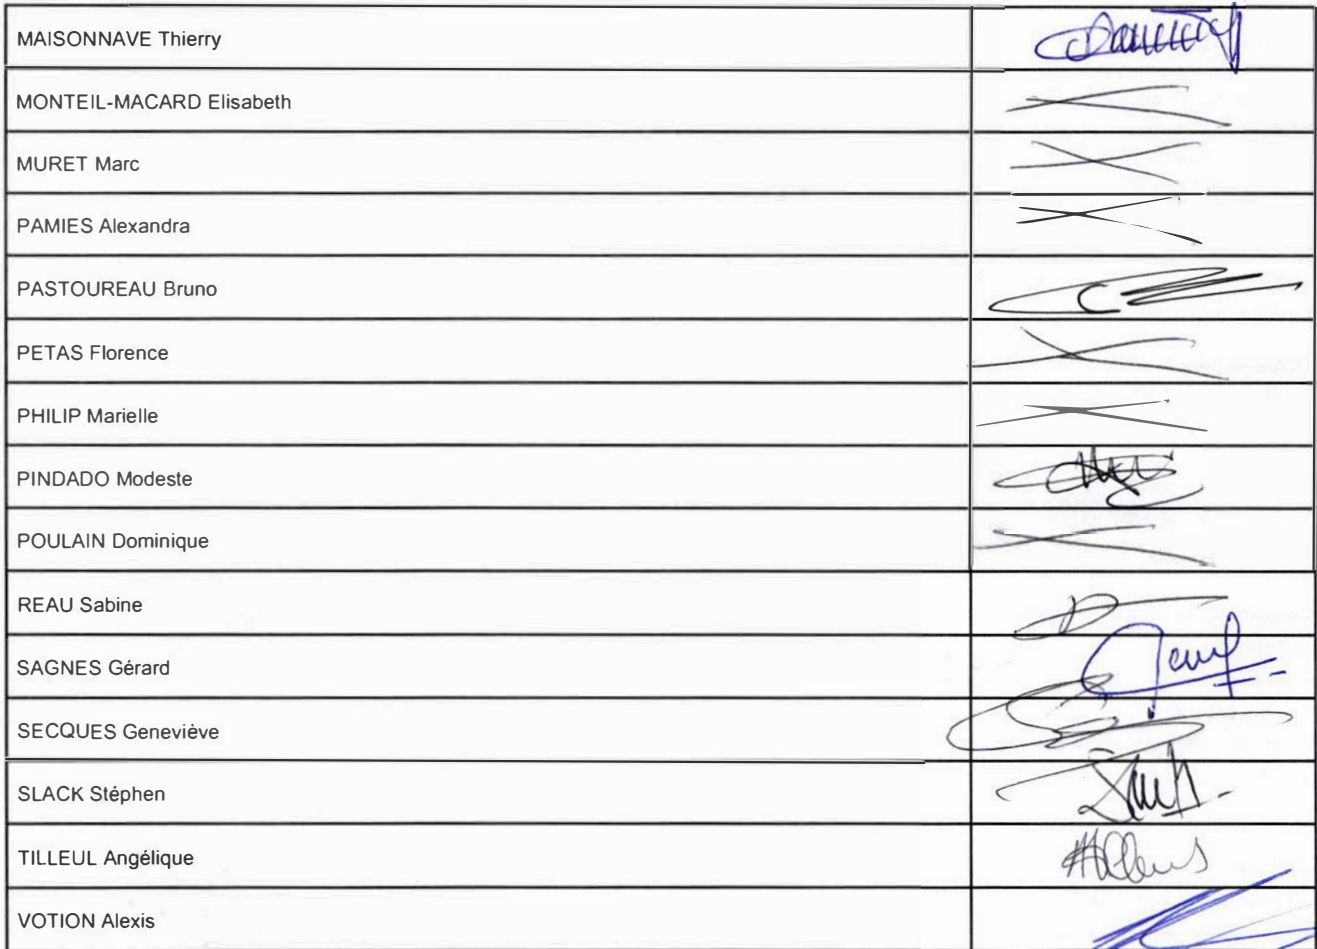 MAISONNAVE Thierry
MONTEIL-MACARD Elisabeth
MURET Marc
PAMIES Alexandra
PASTOUREAU Bruno
PETAS Florence
PHILIP Marielle
PINDADO Modeste
POULAIN Dominique
REAU Sabine
SAGNES Gérard
SECQUES Geneviève
SLACK Stéphen
TILLEUL Angélique
VOTION Alexis